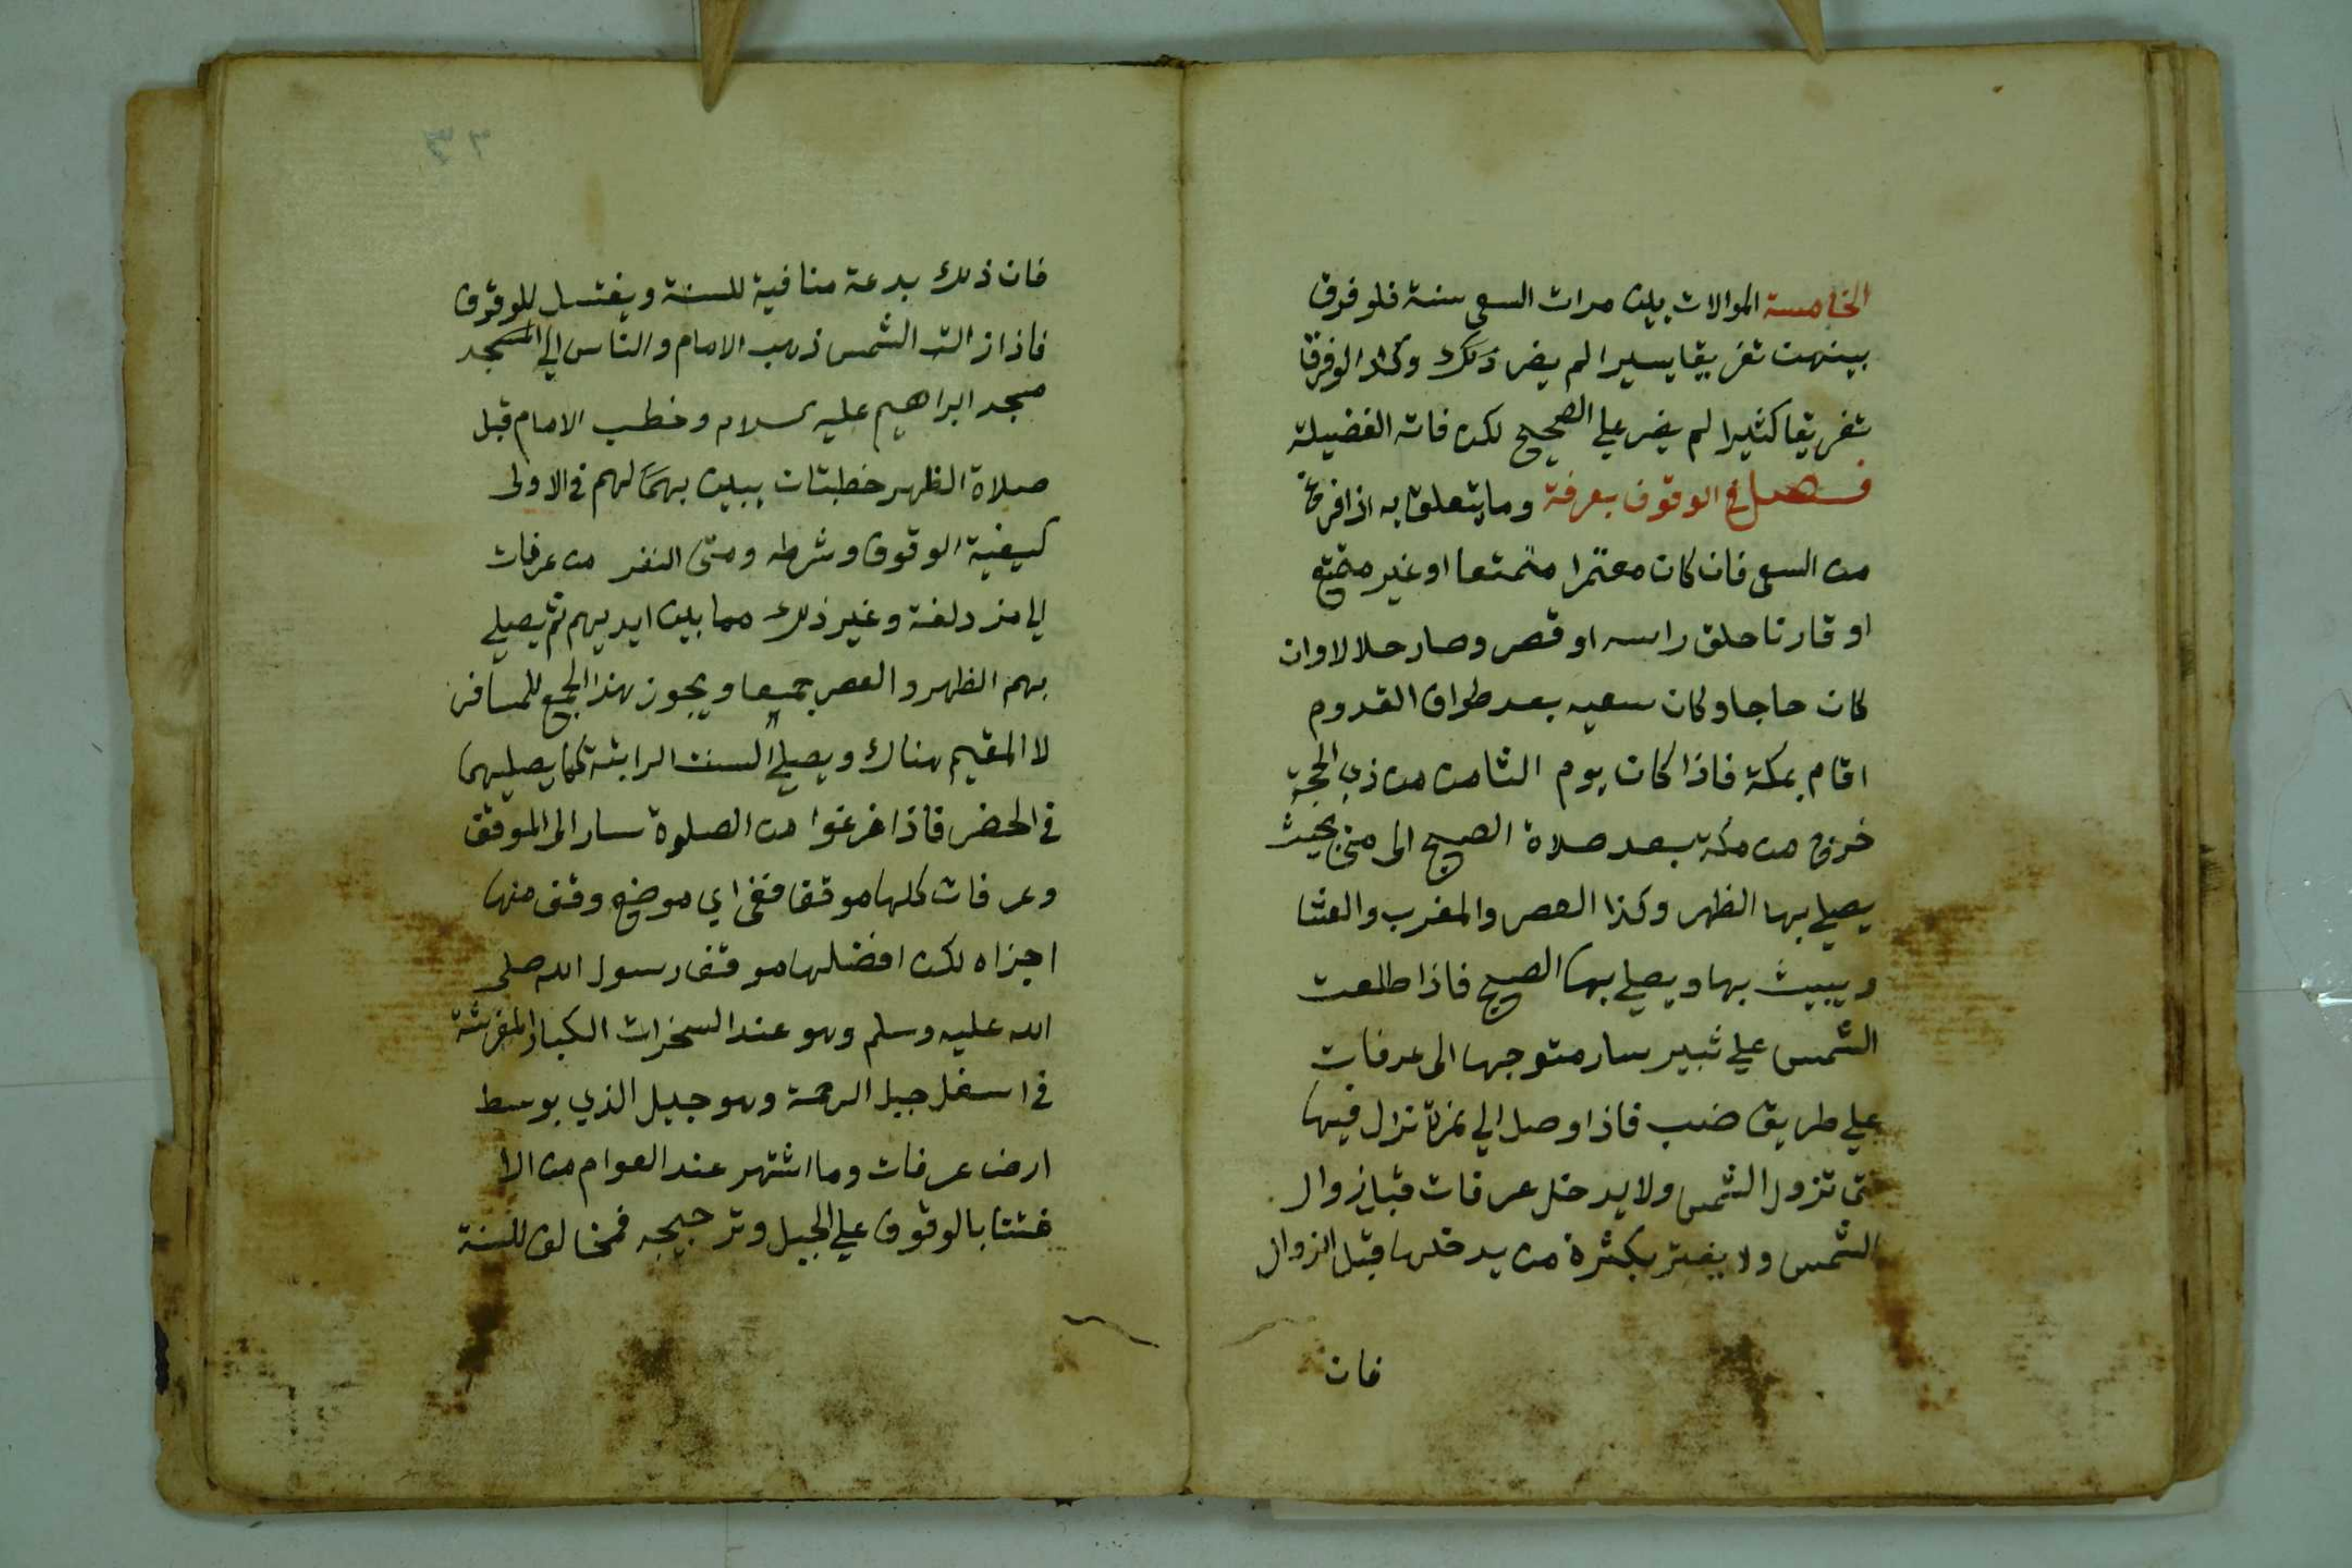 الخامسة الموالات بين مرات السعي سنة فلو فرق
بينهن تفريقا يسيرا لم يضر ذلك وكذا لو فرقا
تفريقا كثيرا لم يضر علي الصحيح لكن فاته الفضيلة
فصل في الوقوف بعرفة وما يتعلق به اذا فرغ
من السعي فان كان معتمرا متمتعا او غير متمتع
او قارنا حلق راسه او قصر وصار حلالا وان
كان حاجا وكان سعيه بعد طواف القدوم
اقام بمكة فاذا كان يوم الثامن من ذي الحجة
خرج من مكة بعد صلاة الصبح الى منى بحيث
يصلي بها الظهر وكذا العصر والمغرب والعشا
ويبيت بها ويصلي بها الصبح فاذا طلعت
الشمس علي ثبير سار متوجها الى عرفات
علي طريق ضب فاذا وصل الي نمرة نزل فيها
حتى تزول الشمس ولا يدخل عرفات قبل زوال
الشمس ولا يغتر بكثرة من يدخلها قبل الزوال
فان
فان ذلك بدعة منافية للسنة ويغتسل للوقوف
فاذا زالت الشمس ذهب الامام والناس الي المسجد
مسجد ابراهيم عليه السلام وخطب الامام قبل
صلاة الظهر خطبتان يبين بهما لهم في الاولى
كيفية الوقوف وشرطه ومتى النفر من عرفات
الي مزدلفة وغير ذلك مما بين ايديهم ثم يصلي
بهم الظهر والعصر جميعا ويجوز هذا الجمع للمسافر
لا المقيم هناك ويصلي السنت الراتبة كما يصليها
في الحضر فاذا فرغوا من الصلوة سار الى الموقف
وعرفات كلها موقف ففي اي موضع وقف منها
اجزاه لكن افضلها موقف رسول الله صلى
الله عليه وسلم وهو عند السخرات الكبار المفرشة
في اسفل جبل الرحمة وهو جبيل الذي بوسط
ارض عرفات وما اشتهر عند العوام من الا
غتنا بالوقوف علي الجبل وترجيحه فمخالف للسنة